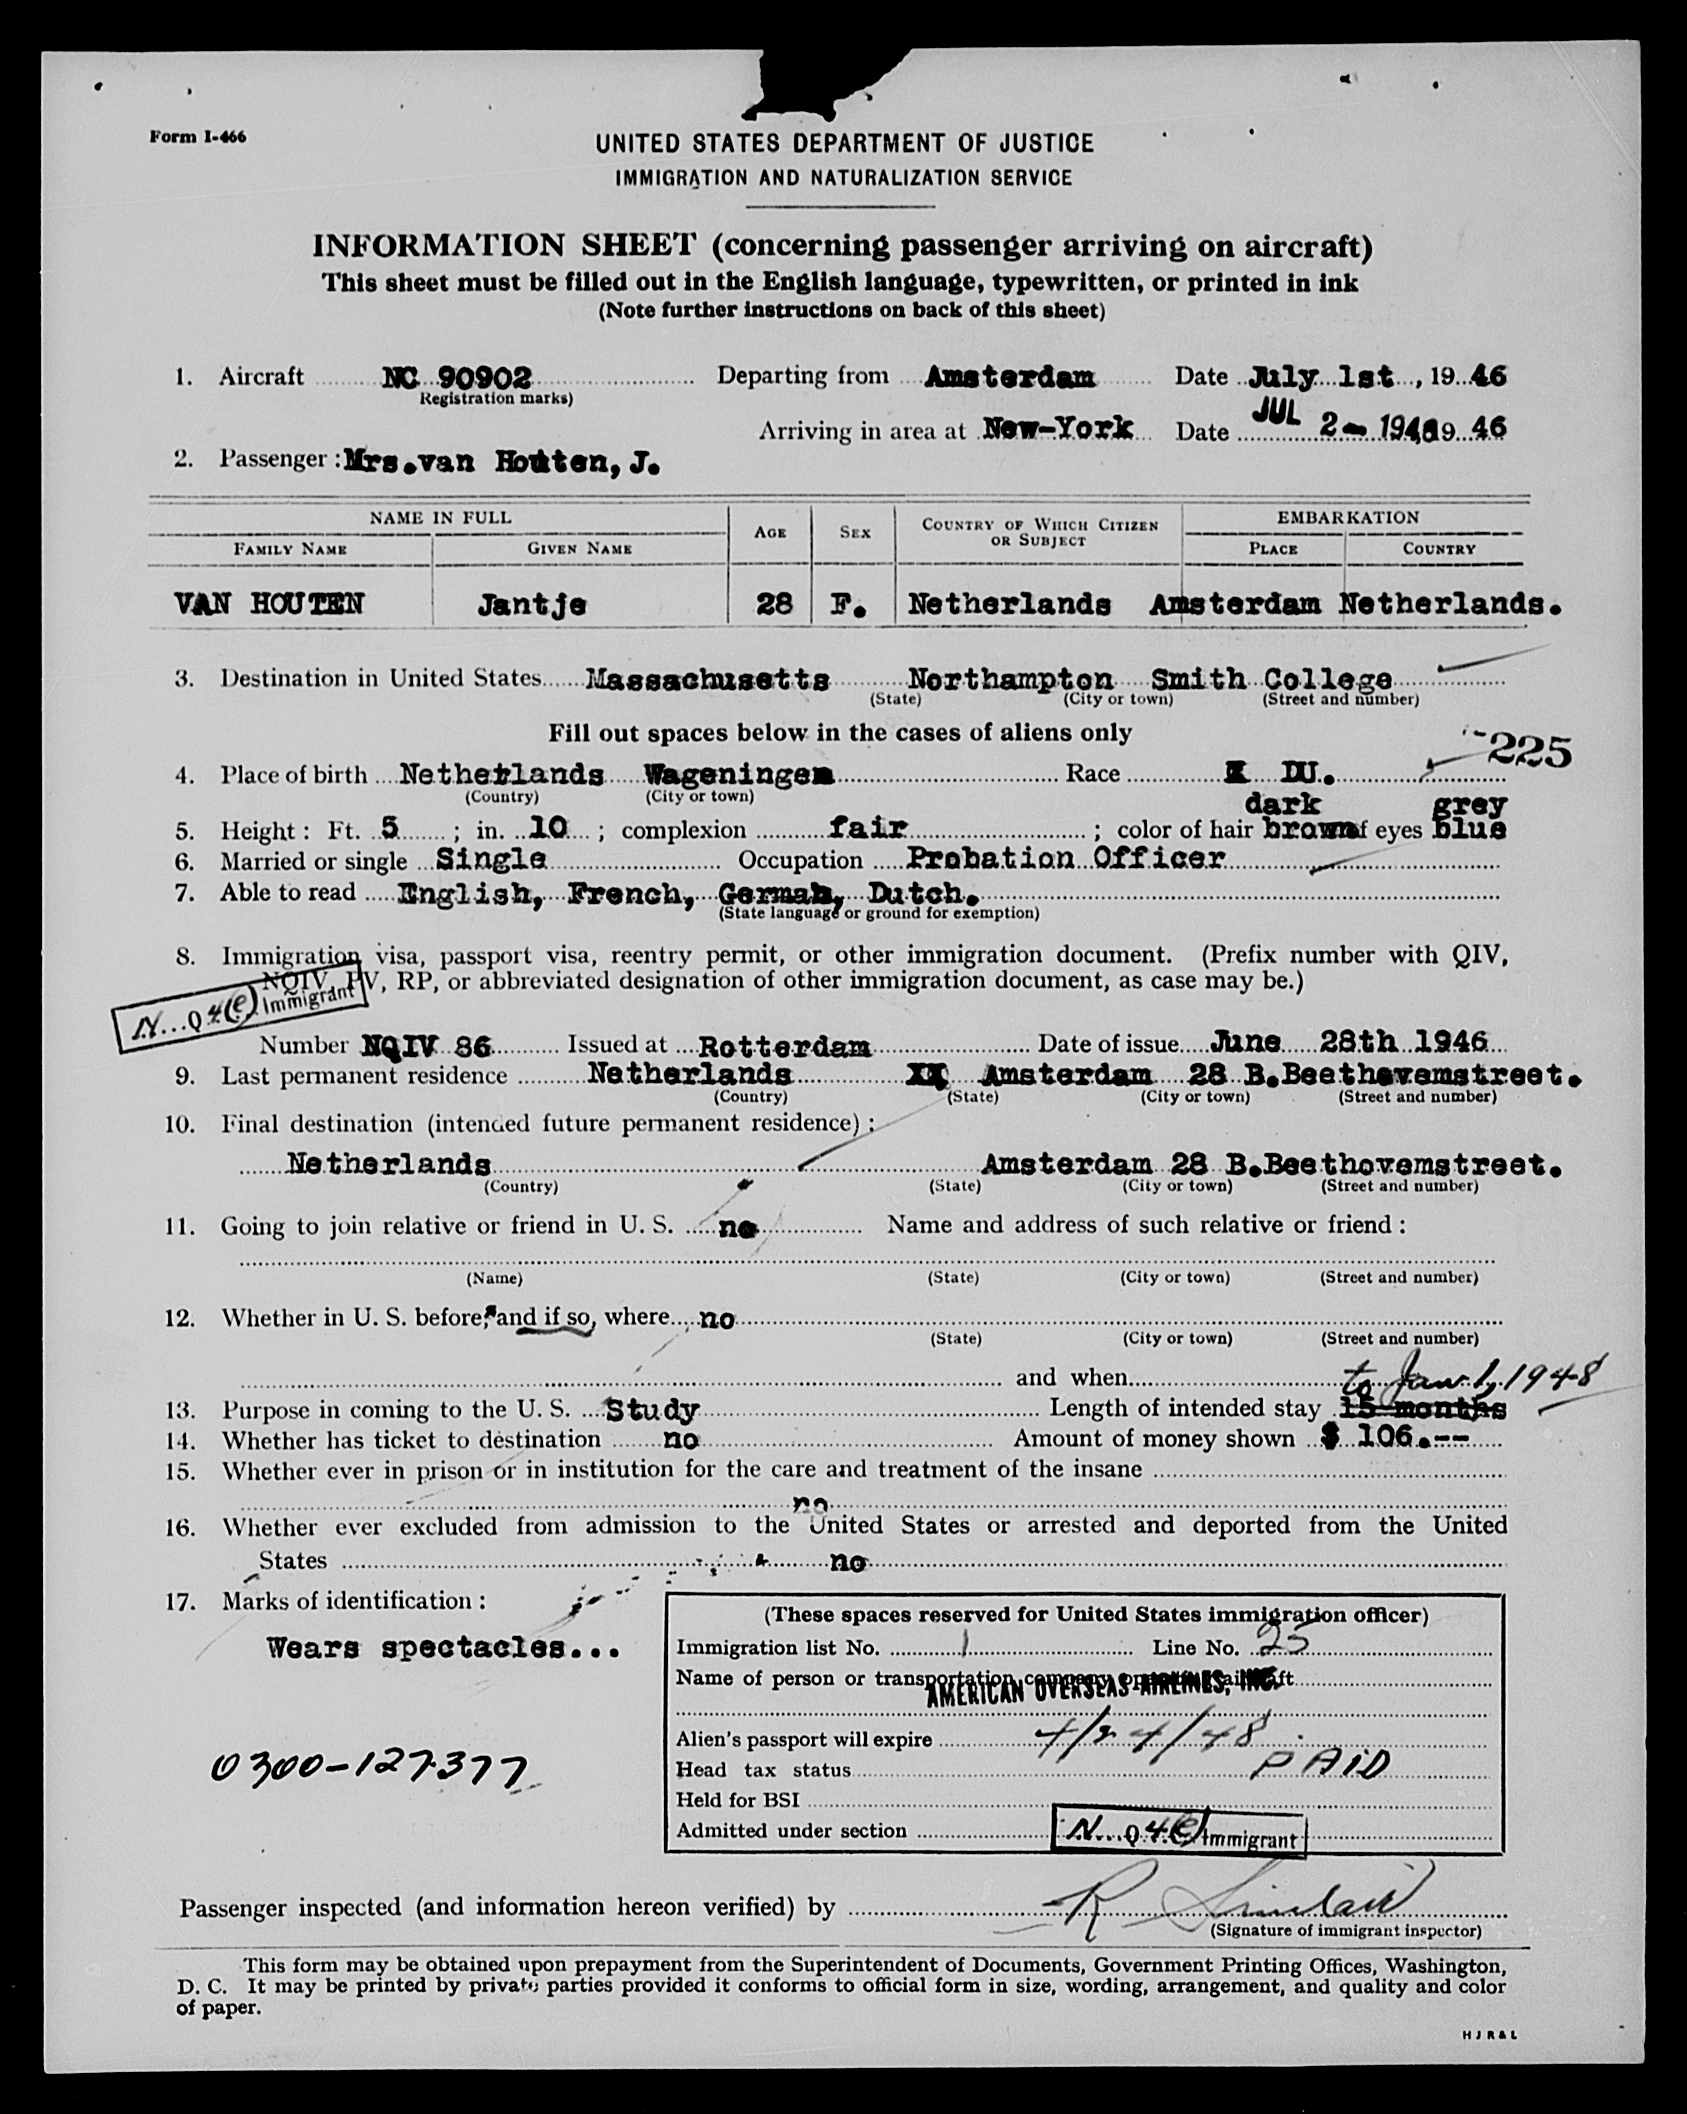 Form I-466
UNITED STATES DEPARTMENT OF JUSTICE
IMMIGRATION AND NATURALIZATION SERVICE
INFORMATION SHEET (concerning passenger arriving on aircraft)
This sheet must be filled out in the English language, typewritten, or printed in ink
(Note further instructions on back of this sheet)
1. Aircraft NC 90902 Departing from Amsterdam Date July 1st, 19 46
Registration marks)
Arriving in area at New-York Date JUL 2 - 1946 19 46
2. Passenger: Mrs.van Houten, J.
NAME IN FULL AGE SEX COUNTRY OF WHICH CITIZEN OR SUBJECT EMBARKATION
FAMILY NAME GIVEN NAME PLACE COUNTRY
VAN HOUTEN Jantje 28 F. Netherlands Amsterdam Netherlands.
3. Destination in United States Massachusetts Northampton Smith College
(State) (City or town) (Street and number)
Fill out spaces below in the cases of aliens only
225
4. Place of birth Netherlands Wageningen Race X DU.
(Country) (City or town)
dark grey
5. Height: Ft. 5; in. 10; complexion fair; color of hair brown of eyes blue
6. Married or single Single Occupation Probation Officer
7. Able to read English, French, German, Dutch.
(State language or ground for exemption)
8. Immigration visa, passport visa, reentry permit, or other immigration document. (Prefix number with QIV,
NQIV, PV, RP, or abbreviated designation of other immigration document, as case may be.)
N...Q 4(e) Immigrant
Number NQIV 86 Issued at Rotterdam Date of issue June 28th 1946
9. Last permanent residence Netherlands XX Amsterdam 28 B.Beethovemstreet.
(Country) (State) (City or town) (Street and number)
10. Final destination (intended future permanent residence):
Netherlands Amsterdam 28 B.Beethovemstreet.
(Country) (State) (City or town) (Street and number)
11. Going to join relative or friend in U. S. no Name and address of such relative or friend:
(Name) (State) (City or town) (Street and number)
12. Whether in U. S. before, and if so, where no
(State) (City or town) (Street and number)
and when
to Jan 1, 1948
13. Purpose in coming to the U. S. Study Length of intended stay 15 months
14. Whether has ticket to destination no Amount of money shown $ 106.--
15. Whether ever in prison or in institution for the care and treatment of the insane
no
16. Whether ever excluded from admission to the United States or arrested and deported from the United
States no
17. Marks of identification:
Wears spectacles...
0300-127377
(These spaces reserved for United States immigration officer)
Immigration list No. 1 Line No. 25
Name of person or transportation company operating aircraft
AMERICAN OVERSEAS AIRLINES, INC.
Alien's passport will expire 4/24/48
Head tax status PAID
Held for BSI
Admitted under section N...Q 4(e) Immigrant
Passenger inspected (and information hereon verified) by R Sinclair
(Signature of immigrant inspector)
This form may be obtained upon prepayment from the Superintendent of Documents, Government Printing Offices, Washington,
D. C. It may be printed by private parties provided it conforms to official form in size, wording, arrangement, and quality and color
of paper.
H J R & L